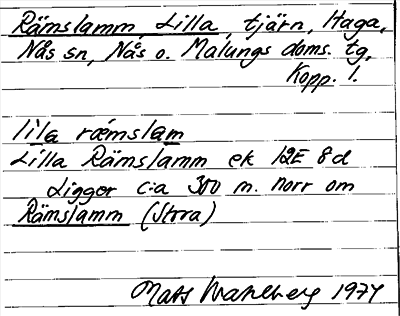 Rämslamm, Lilla, tjärn, Haga,
Nås sn, Nås o. Malungs doms. tg,
Kopp. l.
lila ræmslam
Lilla Rämslamm ek 12E 8d
Ligger c:a 300 m. norr om
Rämslamm (Stora)
Mats Wahlberg 1974